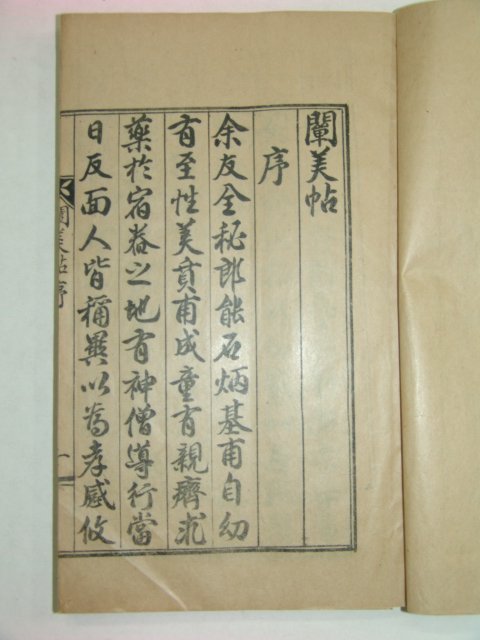 闡美帖
序
余友全秘郎能石炳基甫自幼
有至性美貭甫成童有親癠求
藥於宿舂之地有神僧導行當
日反面人皆稱異以為孝感攸
闡美帖序
一